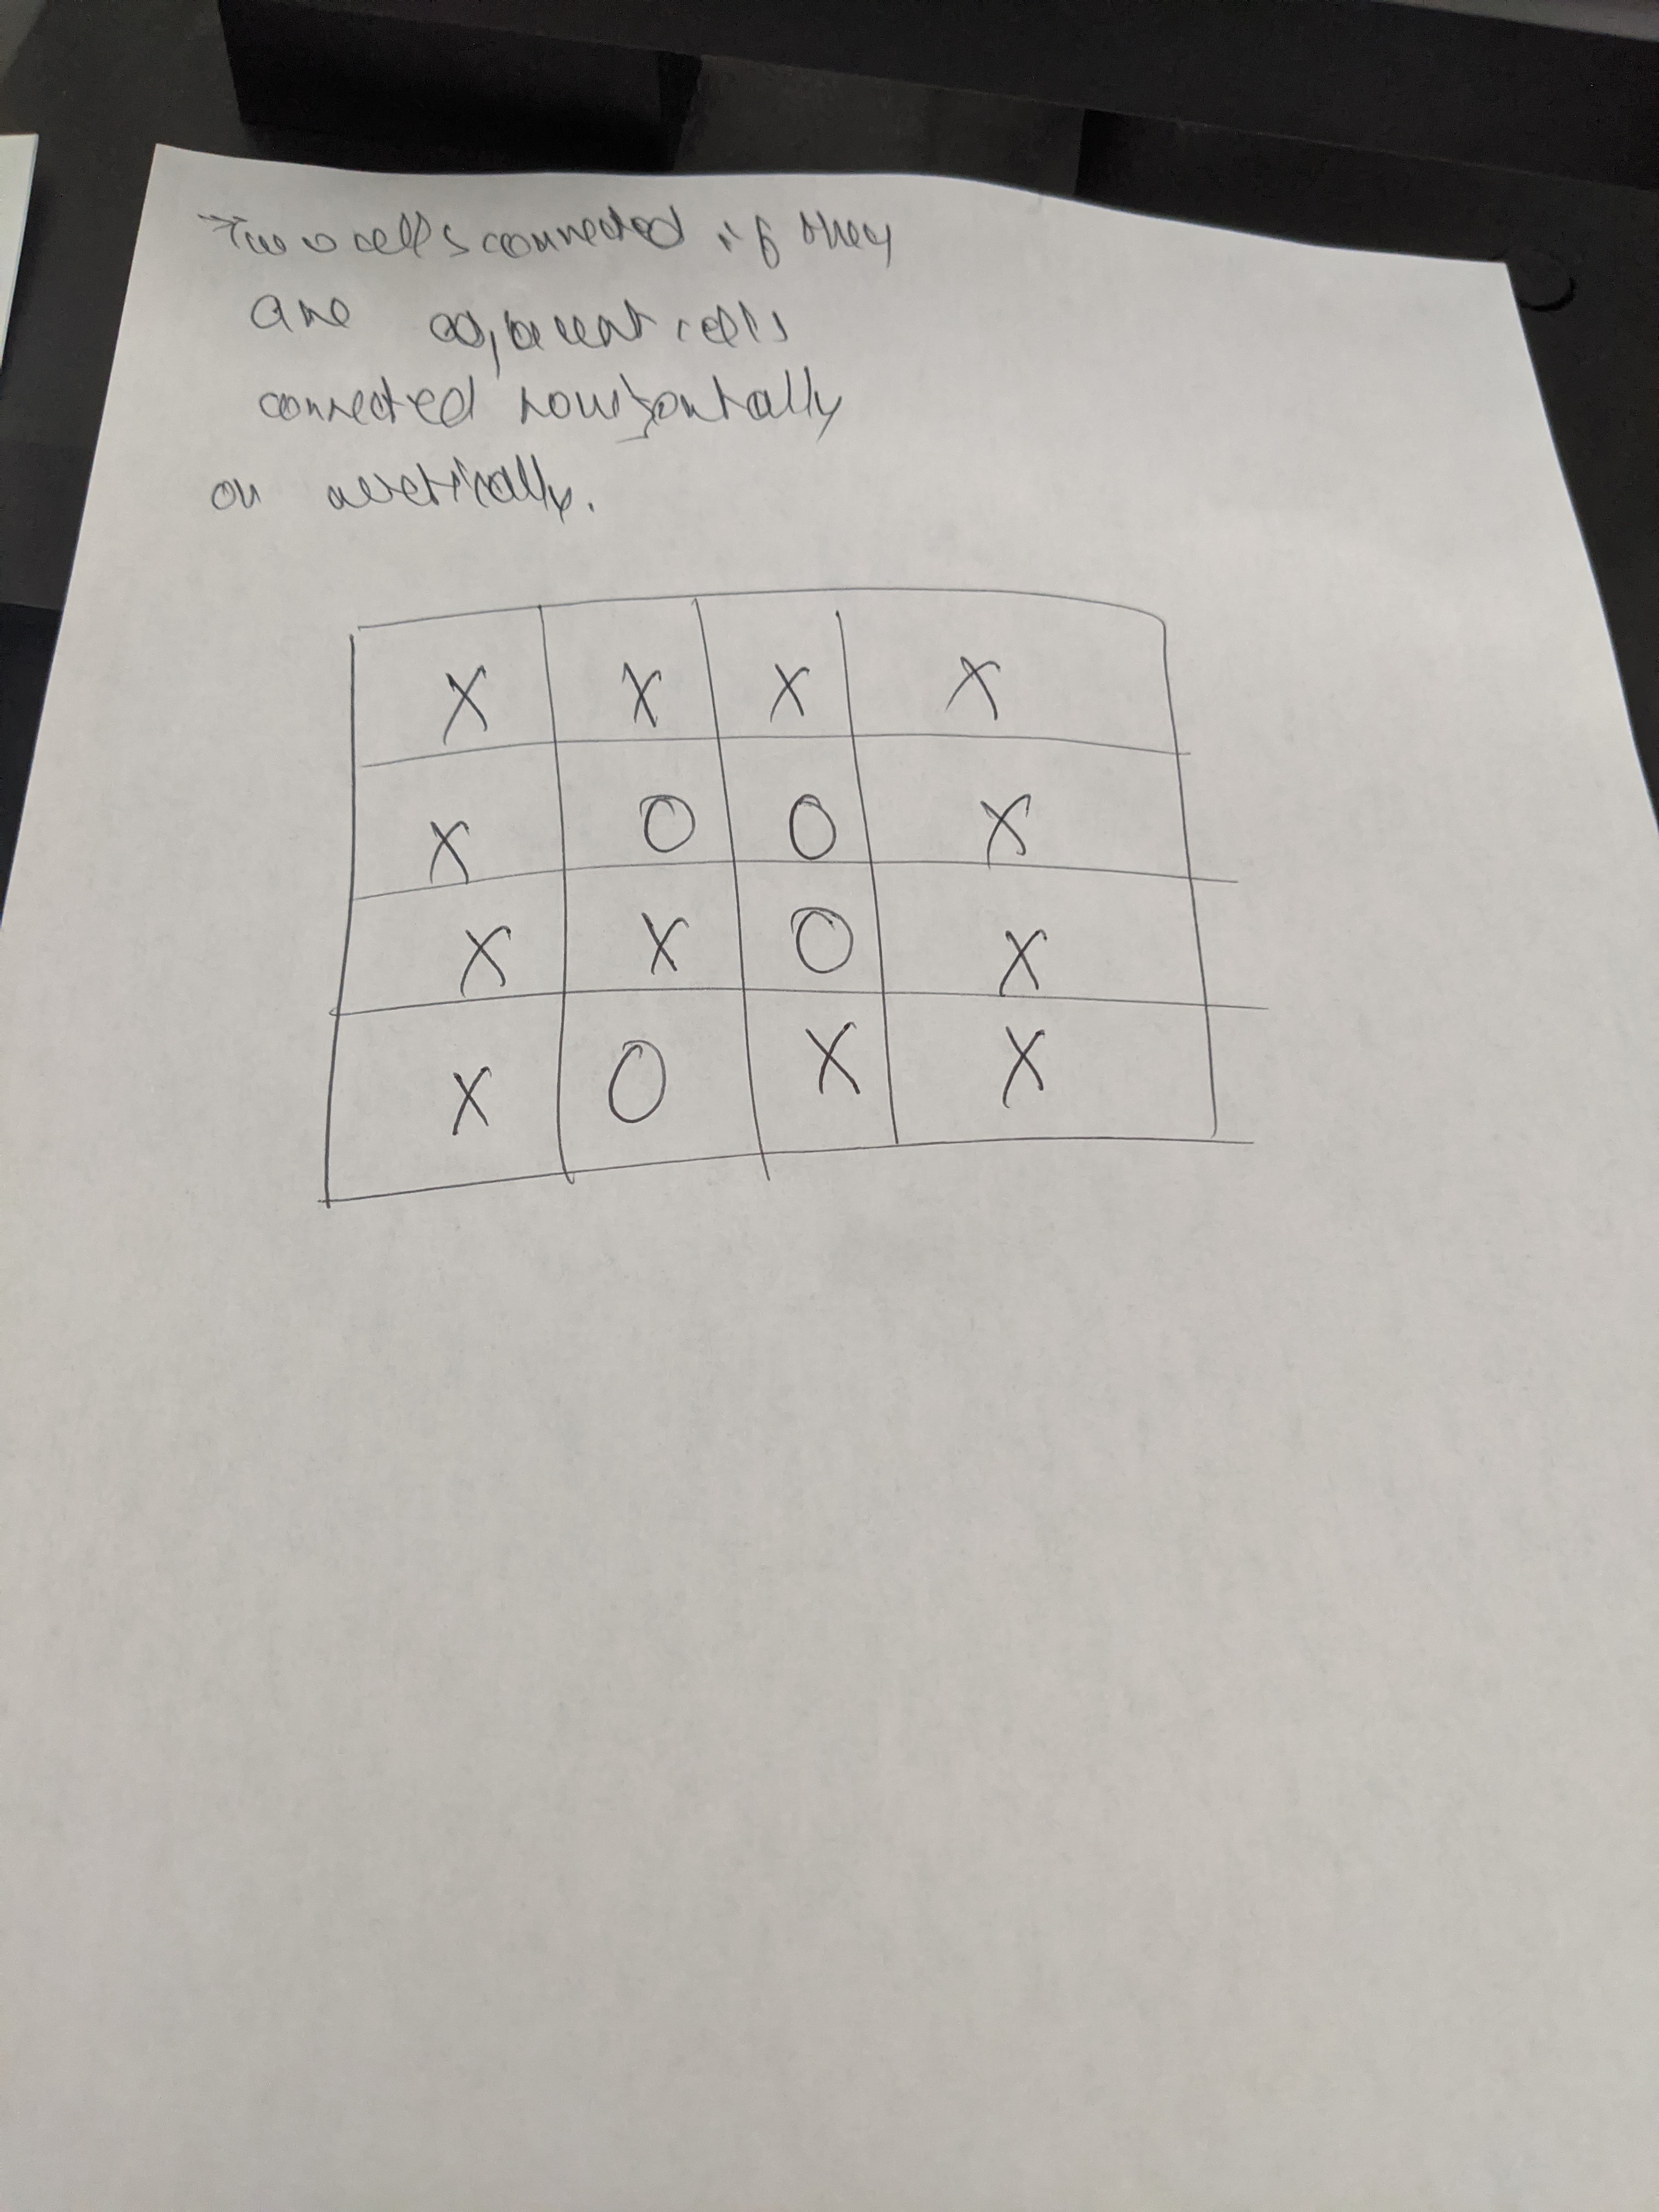 Two cells connected if they
are adjacent cells
connected horizontally
or vertically.
X X X X
X O O X
X X O X
X O X X